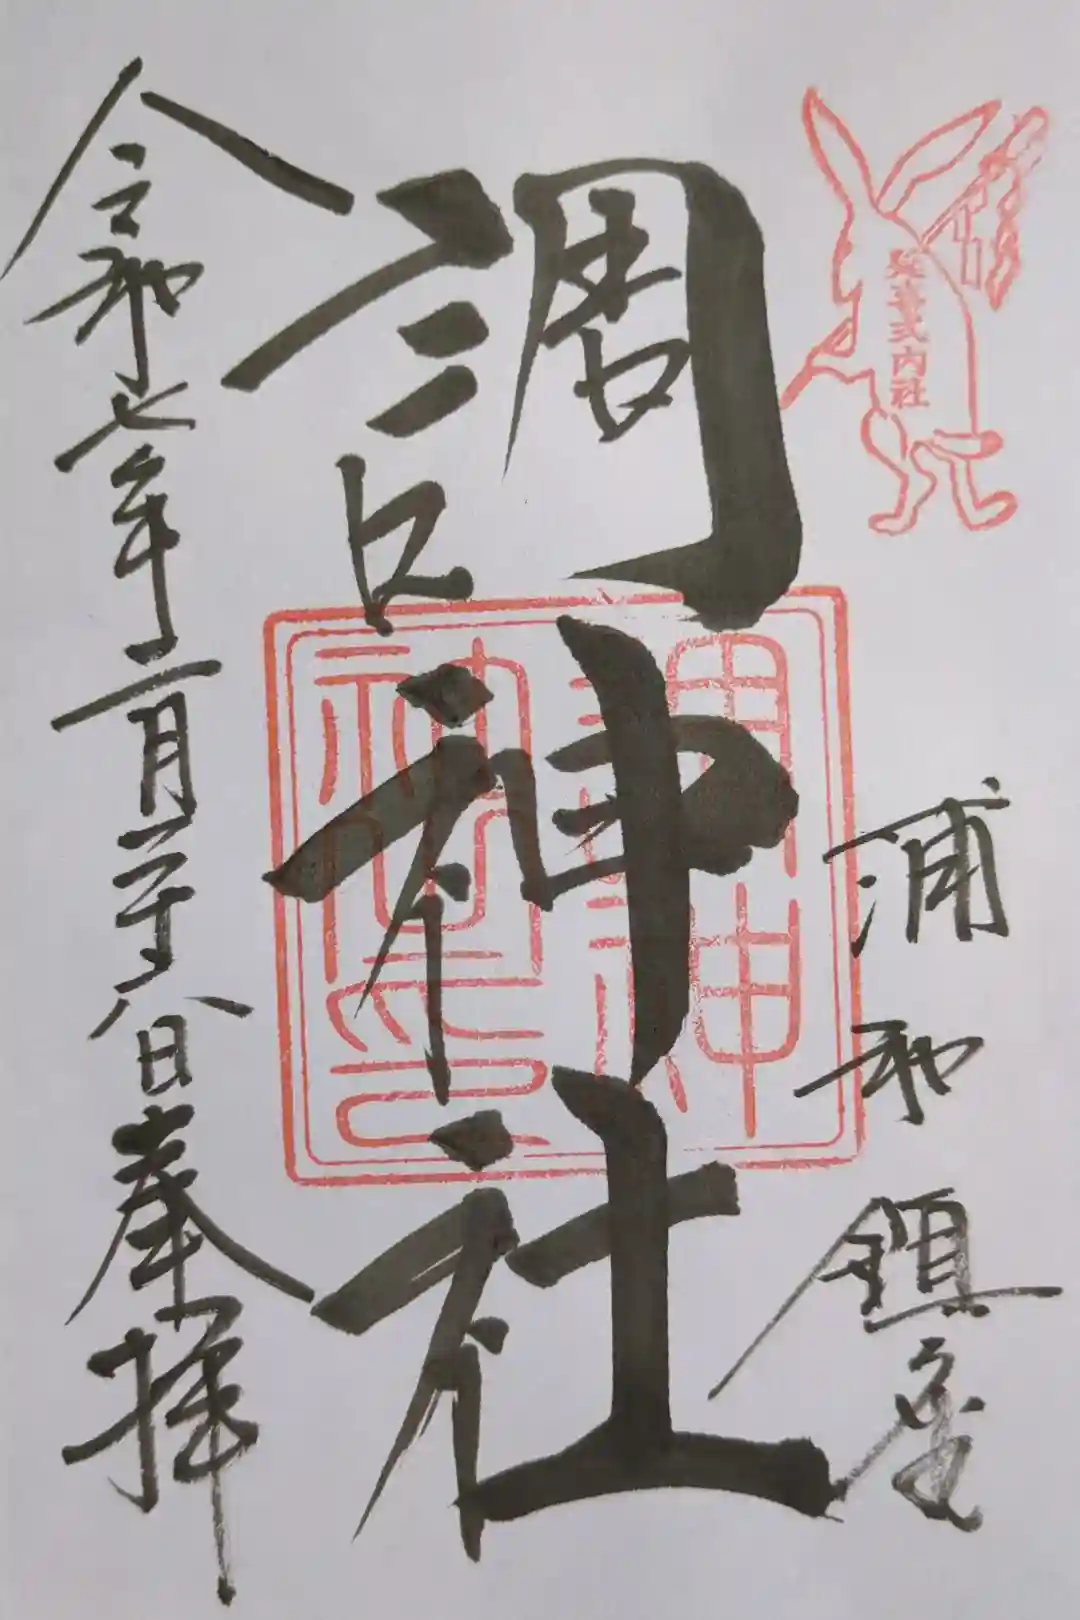 延喜式内社
浦和鎮座
調神社
調神
社印
令和七年二月二十八日奉拝